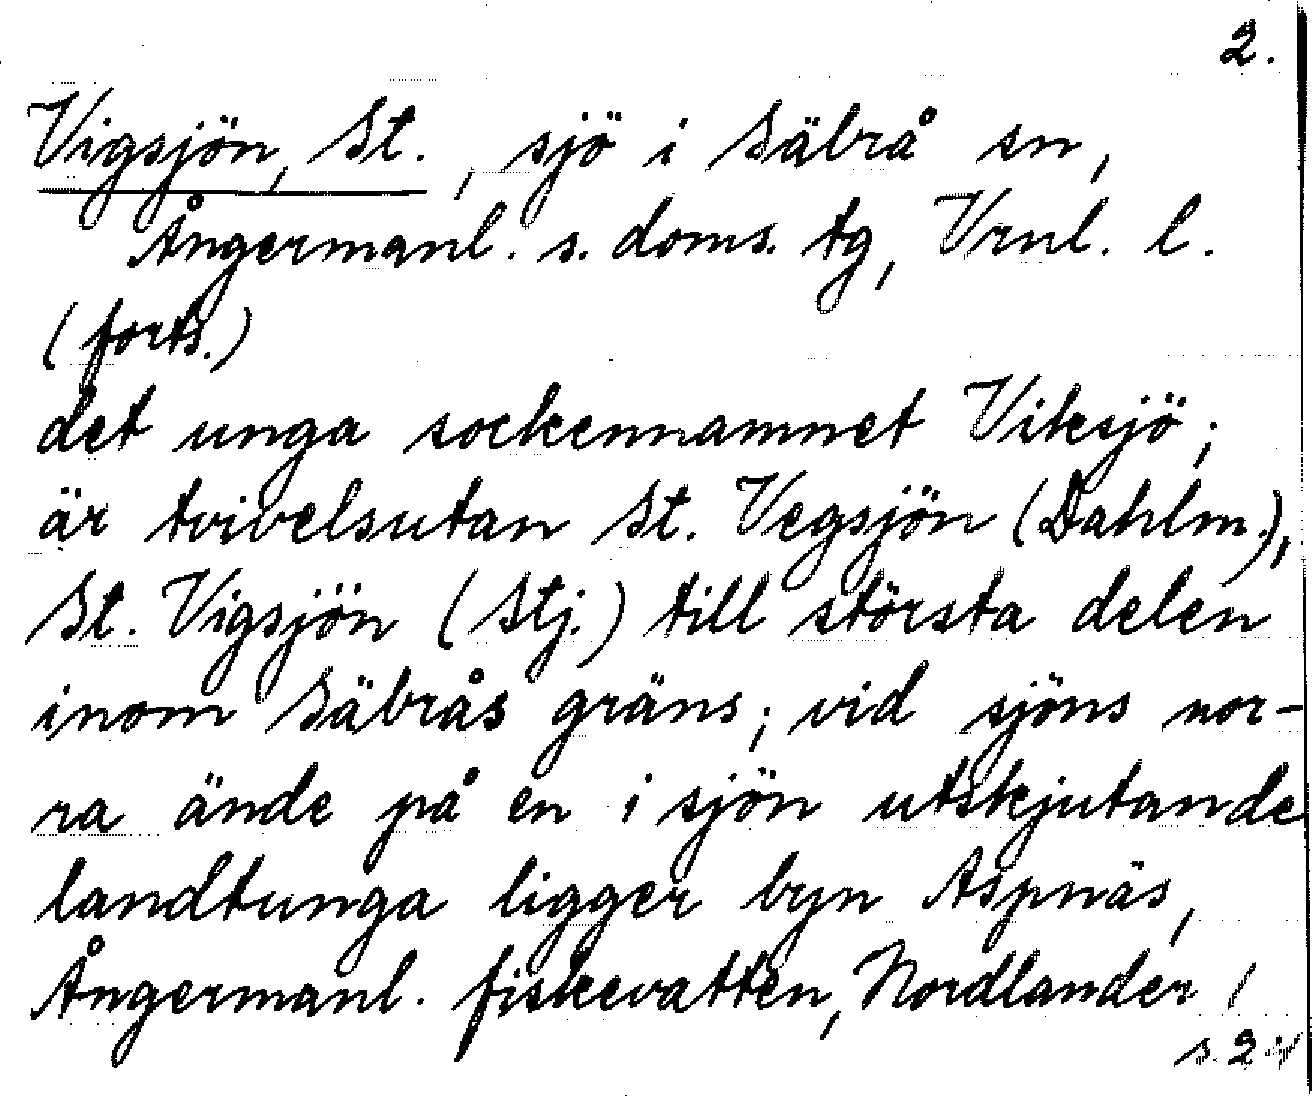 2.
Vigsjön, St., sjö i Säbrå sn,
Ångermanl. s. doms. tg, Vrnl. l.
(forts.)
det unga sockennamnet Viksjö;
är tvivelsutan St. Vegsjön (Dahlm.),
St. Vigsjön (Stj.) till största delen
inom Säbrås gräns; vid sjöns nor-
ra ände på en i sjön utskjutande
landtunga ligger byn Aspnäs,
Ångermanl. fiskevatten, Nordlander /
s. 2